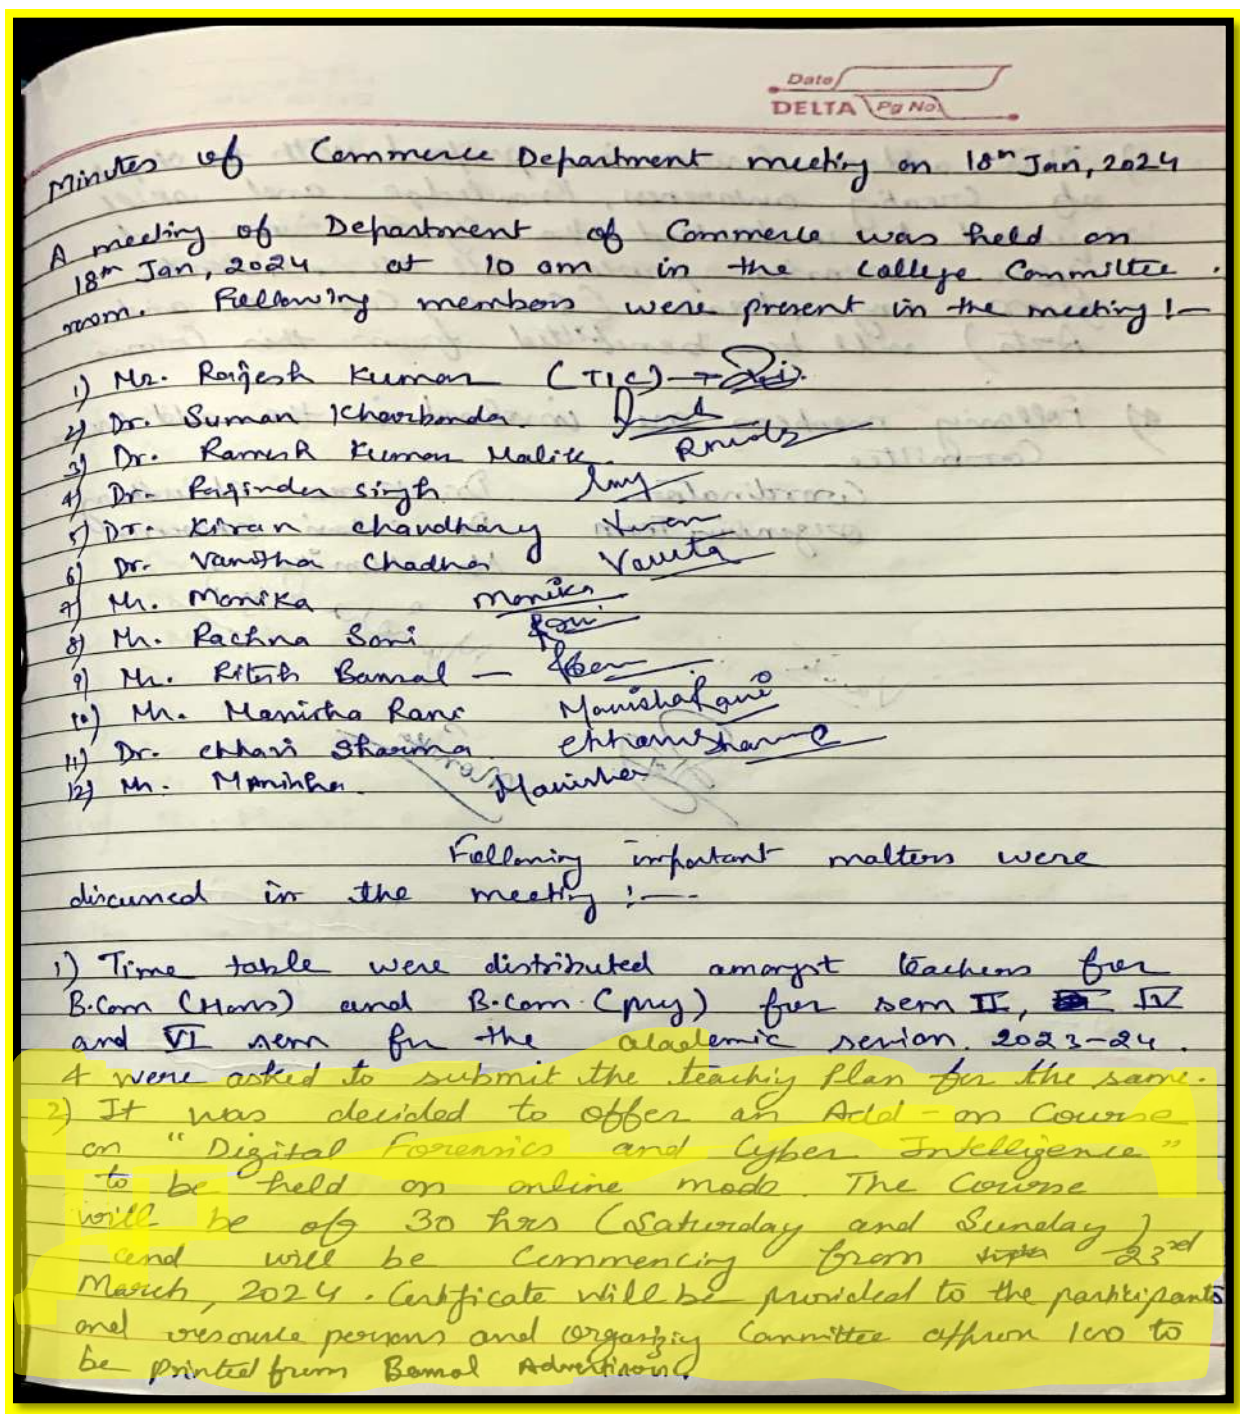 Date
DELTA Pg No
Minutes of Commerce Department meeting on 18th Jan, 2024
A meeting of Department of Commerce was held on
18th Jan, 2024 at 10 am in the College Committee
room. Following members were present in the meeting :-
1) Mr. Rajesh Kumar (TIC) →
2) Dr. Suman Kharbanda
3) Dr. Ramesh Kumar Malik
4) Dr. Rajinder Singh
5) Dr. Kiran Chaudhary Kiran
6) Dr. Vanitha Chadha Vanita
7) Ms. Monika Monika
8) Ms. Rachna Soni Soni
9) Mr. Ritesh Bansal —
10) Ms. Manisha Rani Manisha Rani
11) Dr. Chhavi Sharma Chhavi Sharma
12) Ms. Manisha Manisha
Following important matters were
discussed in the meeting :—
1) Time table were distributed amongst teachers for
B.Com (Hons) and B.Com (prog) for sem II, IV
and VI sem for the academic session 2023-24.
& were asked to submit the teaching plan for the same.
2) It was decided to offer an Add-on Course
on "Digital Forensics and Cyber Intelligence"
to be held on online mode. The Course
will be of 30 hrs (Saturday and Sunday)
and will be commencing from 23rd
March, 2024. Certificate will be provided to the participants
and resource persons and organizing Committee approx 100 to
be printed from Bansal Advertising.